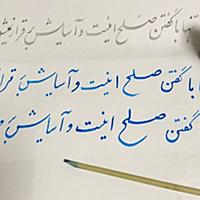 تنها با گفتن صلح امنیت و آسایش برقرار
با گفتن صلح امنیت و آسایش
گفتن صلح امنیت و آسایش